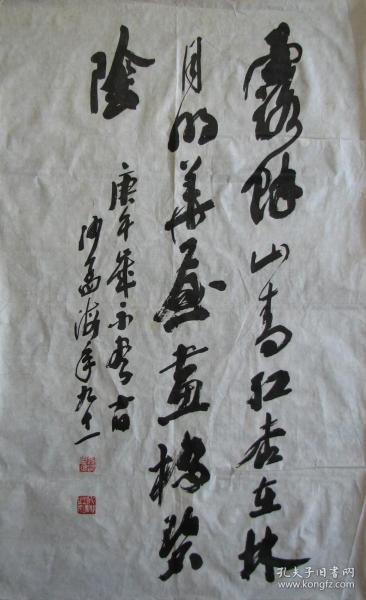 露餘山青紅杏在林
月明華屋畫橋碧
陰
庚午歲不盡
沙孟海年九十一
孔夫子旧书网
www.kongfz.com